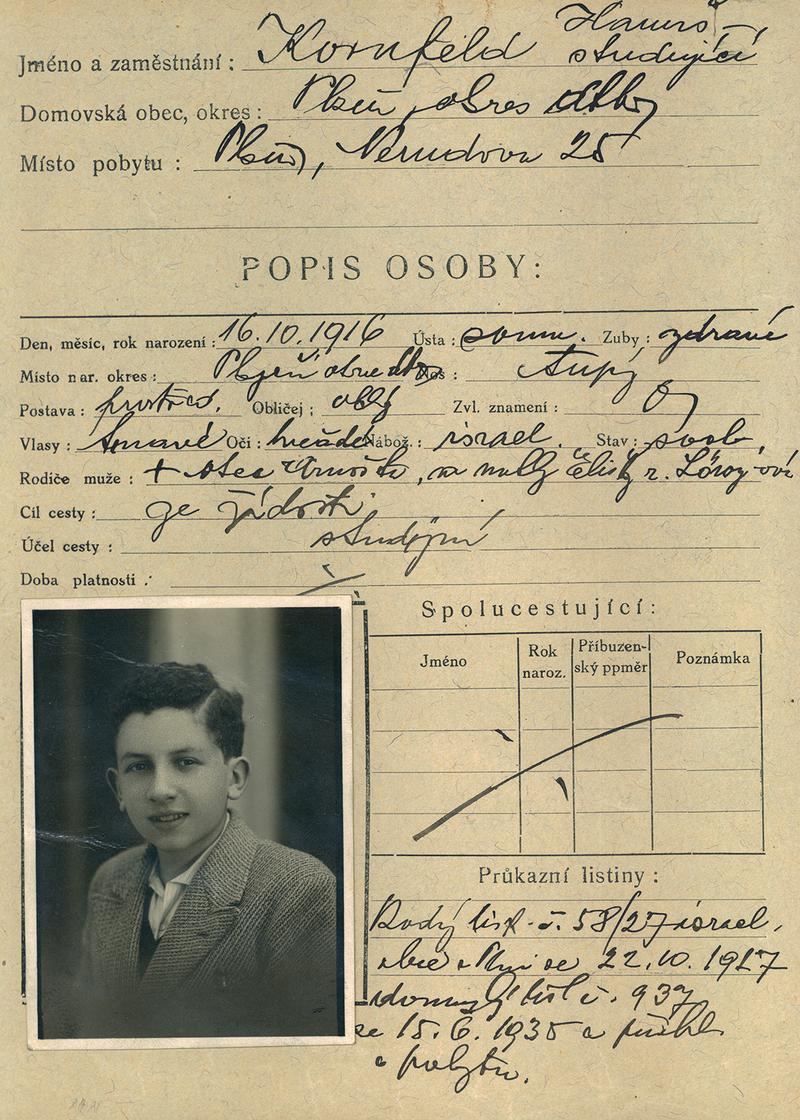 Jméno a zaměstnání : Kornfeld Hanuš studující
Domovská obec, okres : Plzeň, okres
Místo pobytu : Plzeň, Nerudova 25
POPIS OSOBY:
Den, měsíc, rok narození : 16.10.1916 Ústa : soum. Zuby : zdravé
Místo nar. okres : Plzeň Nos : tupý
Postava : prostřed. Obličej ; oblý Zvl. znamení :
Vlasy : tmavé Oči : hnědé Nábož. : israel. Stav : svob.
Rodiče muže : + otec Arnošt, Elišky r.
Cíl cesty :
Účel cesty : studijní
Doba platnosti :
Spolucestující :
Jméno Rok naroz. Příbuzenský ppměr Poznámka
Průkazní listiny :
Rodý list č. 58/27 israel.
obce v Plzni ze 22.10.1927
domovský list č. 937
ze 15.6.1935 a
o pobytu.